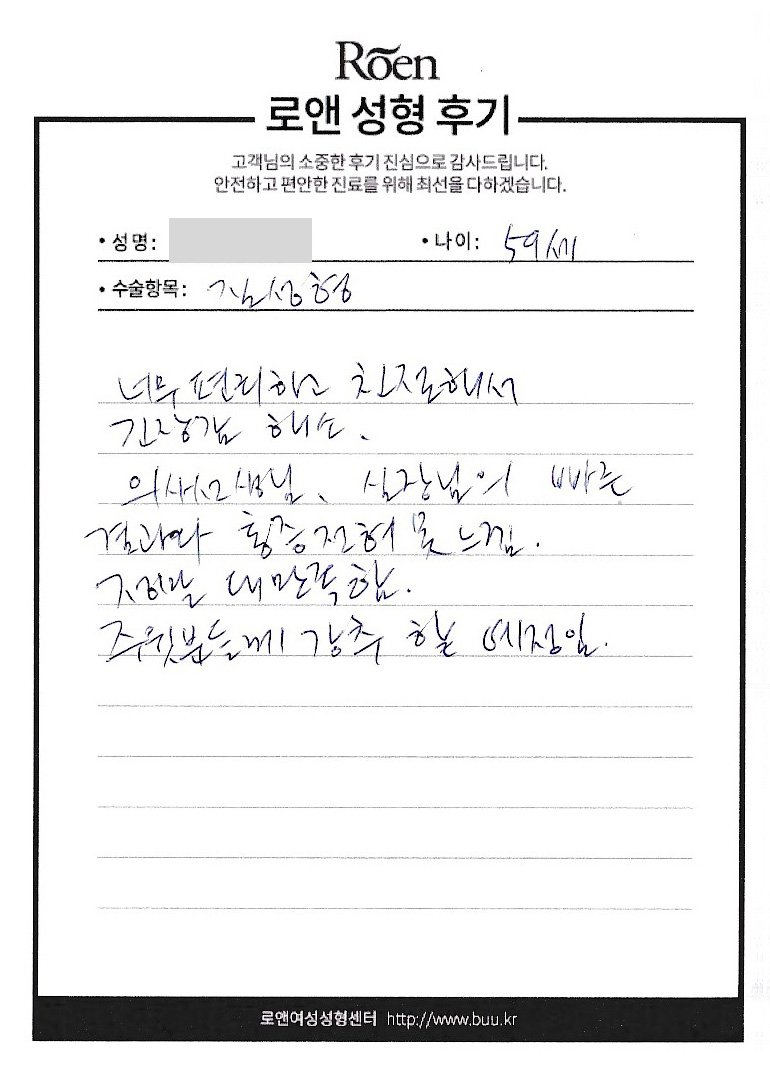 Rõen
로앤 성형 후기
고객님의 소중한 후기 진심으로 감사드립니다.
안전하고 편안한 진료를 위해 최선을 다하겠습니다.
• 성명: • 나이: 59세
• 수술항목: 질성형
너무 편리하고 친절해서
긴장감 해소.
의사선생님, 실장님의 빠른
결과와 통증전혀 못 느낌.
정말 대만족함.
주윗분들께 강추 할 예정임.
로앤여성성형센터 http://www.buu.kr